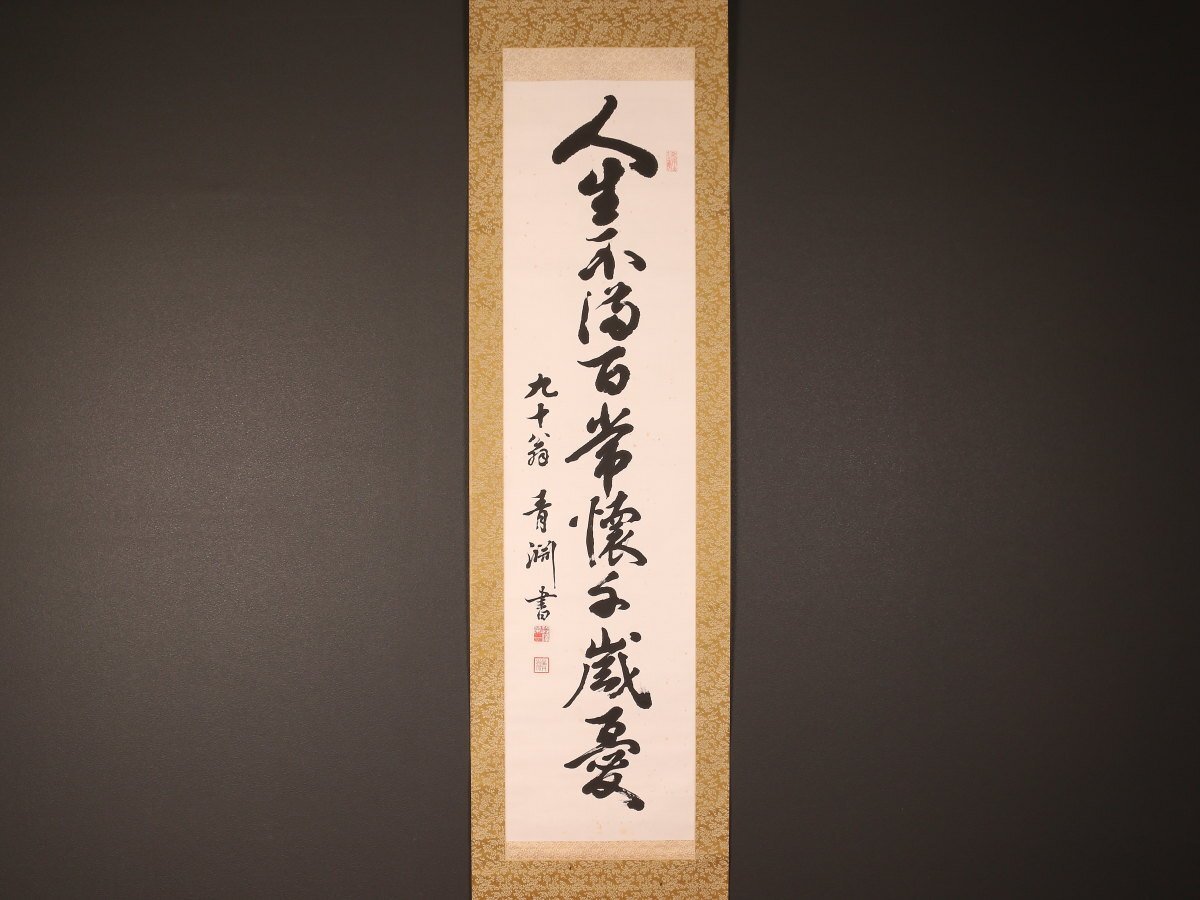 人生不満百常懐千歳憂
九十翁 青淵書